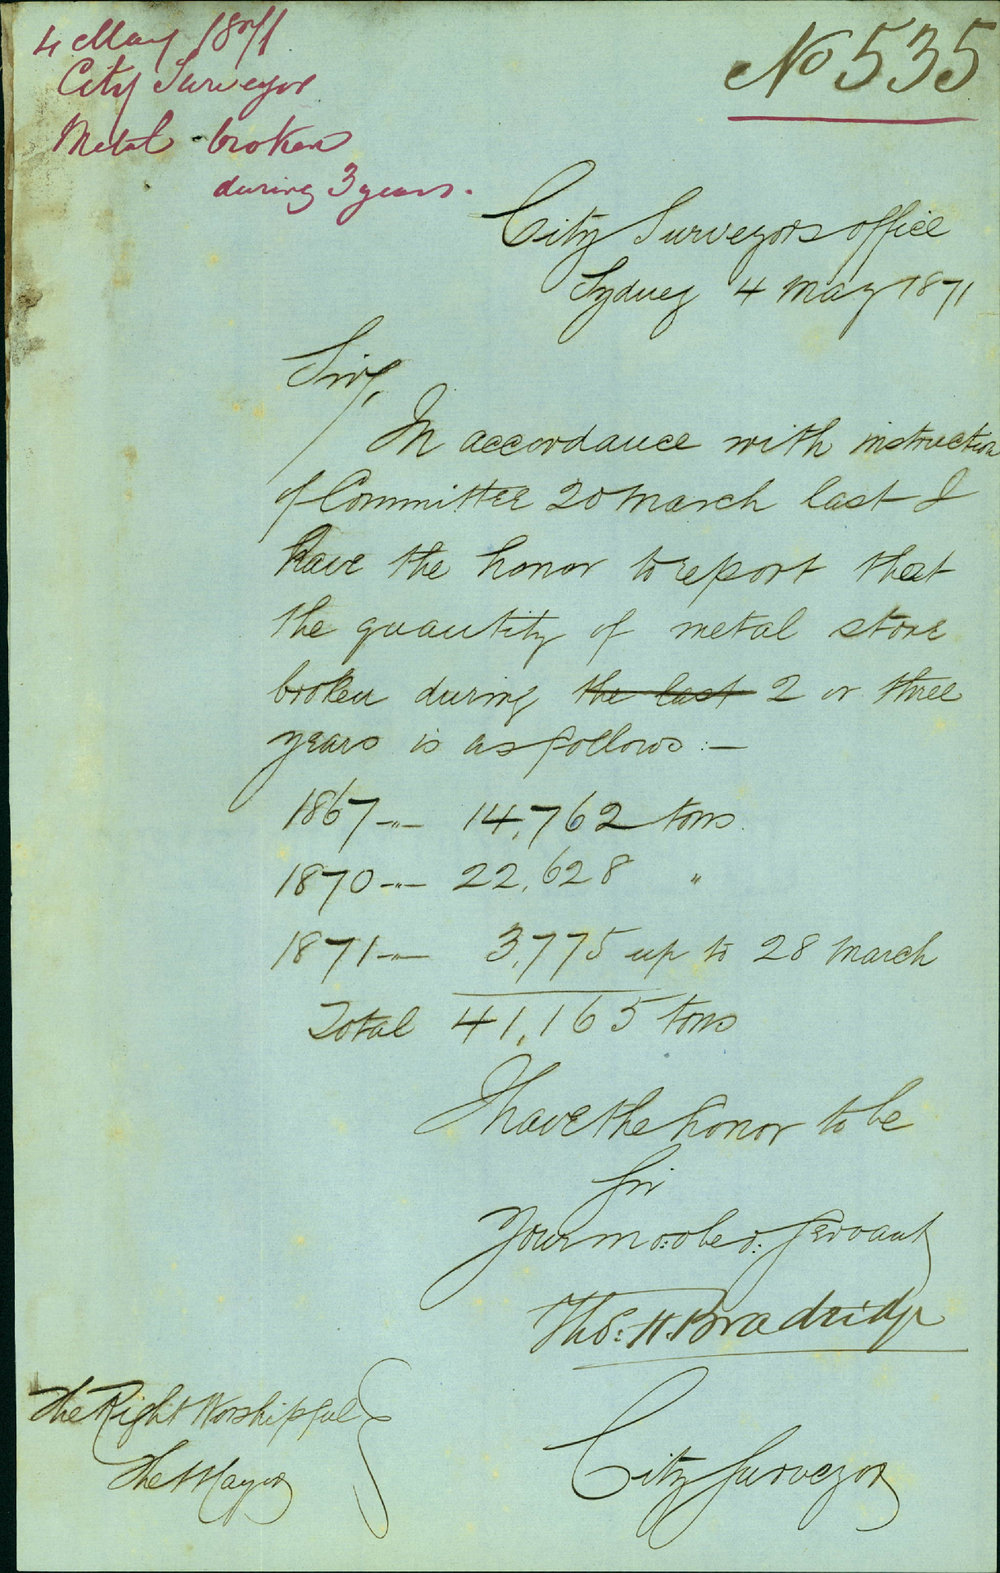 4 May 1871
City Surveyor
Metal broken
during 3 years.
No 535
City Surveyors office
Sydney 4 May 1871
Sir,
In accordance with instruction
of Committee 20 March last I
have the honor to report that
the quantity of metal stone
broken during the last 2 or three
years is as follows:—
1867 -"- 14,762 tons.
1870 -"- 22,628 "
1871 -"- 3,775 up to 28 March
Total 41,165 tons
I have the honor to be
Sir
Your mo: obed: servant
Thos: H. Bradridge
City Surveyor
The Right Worshipful
The Mayor